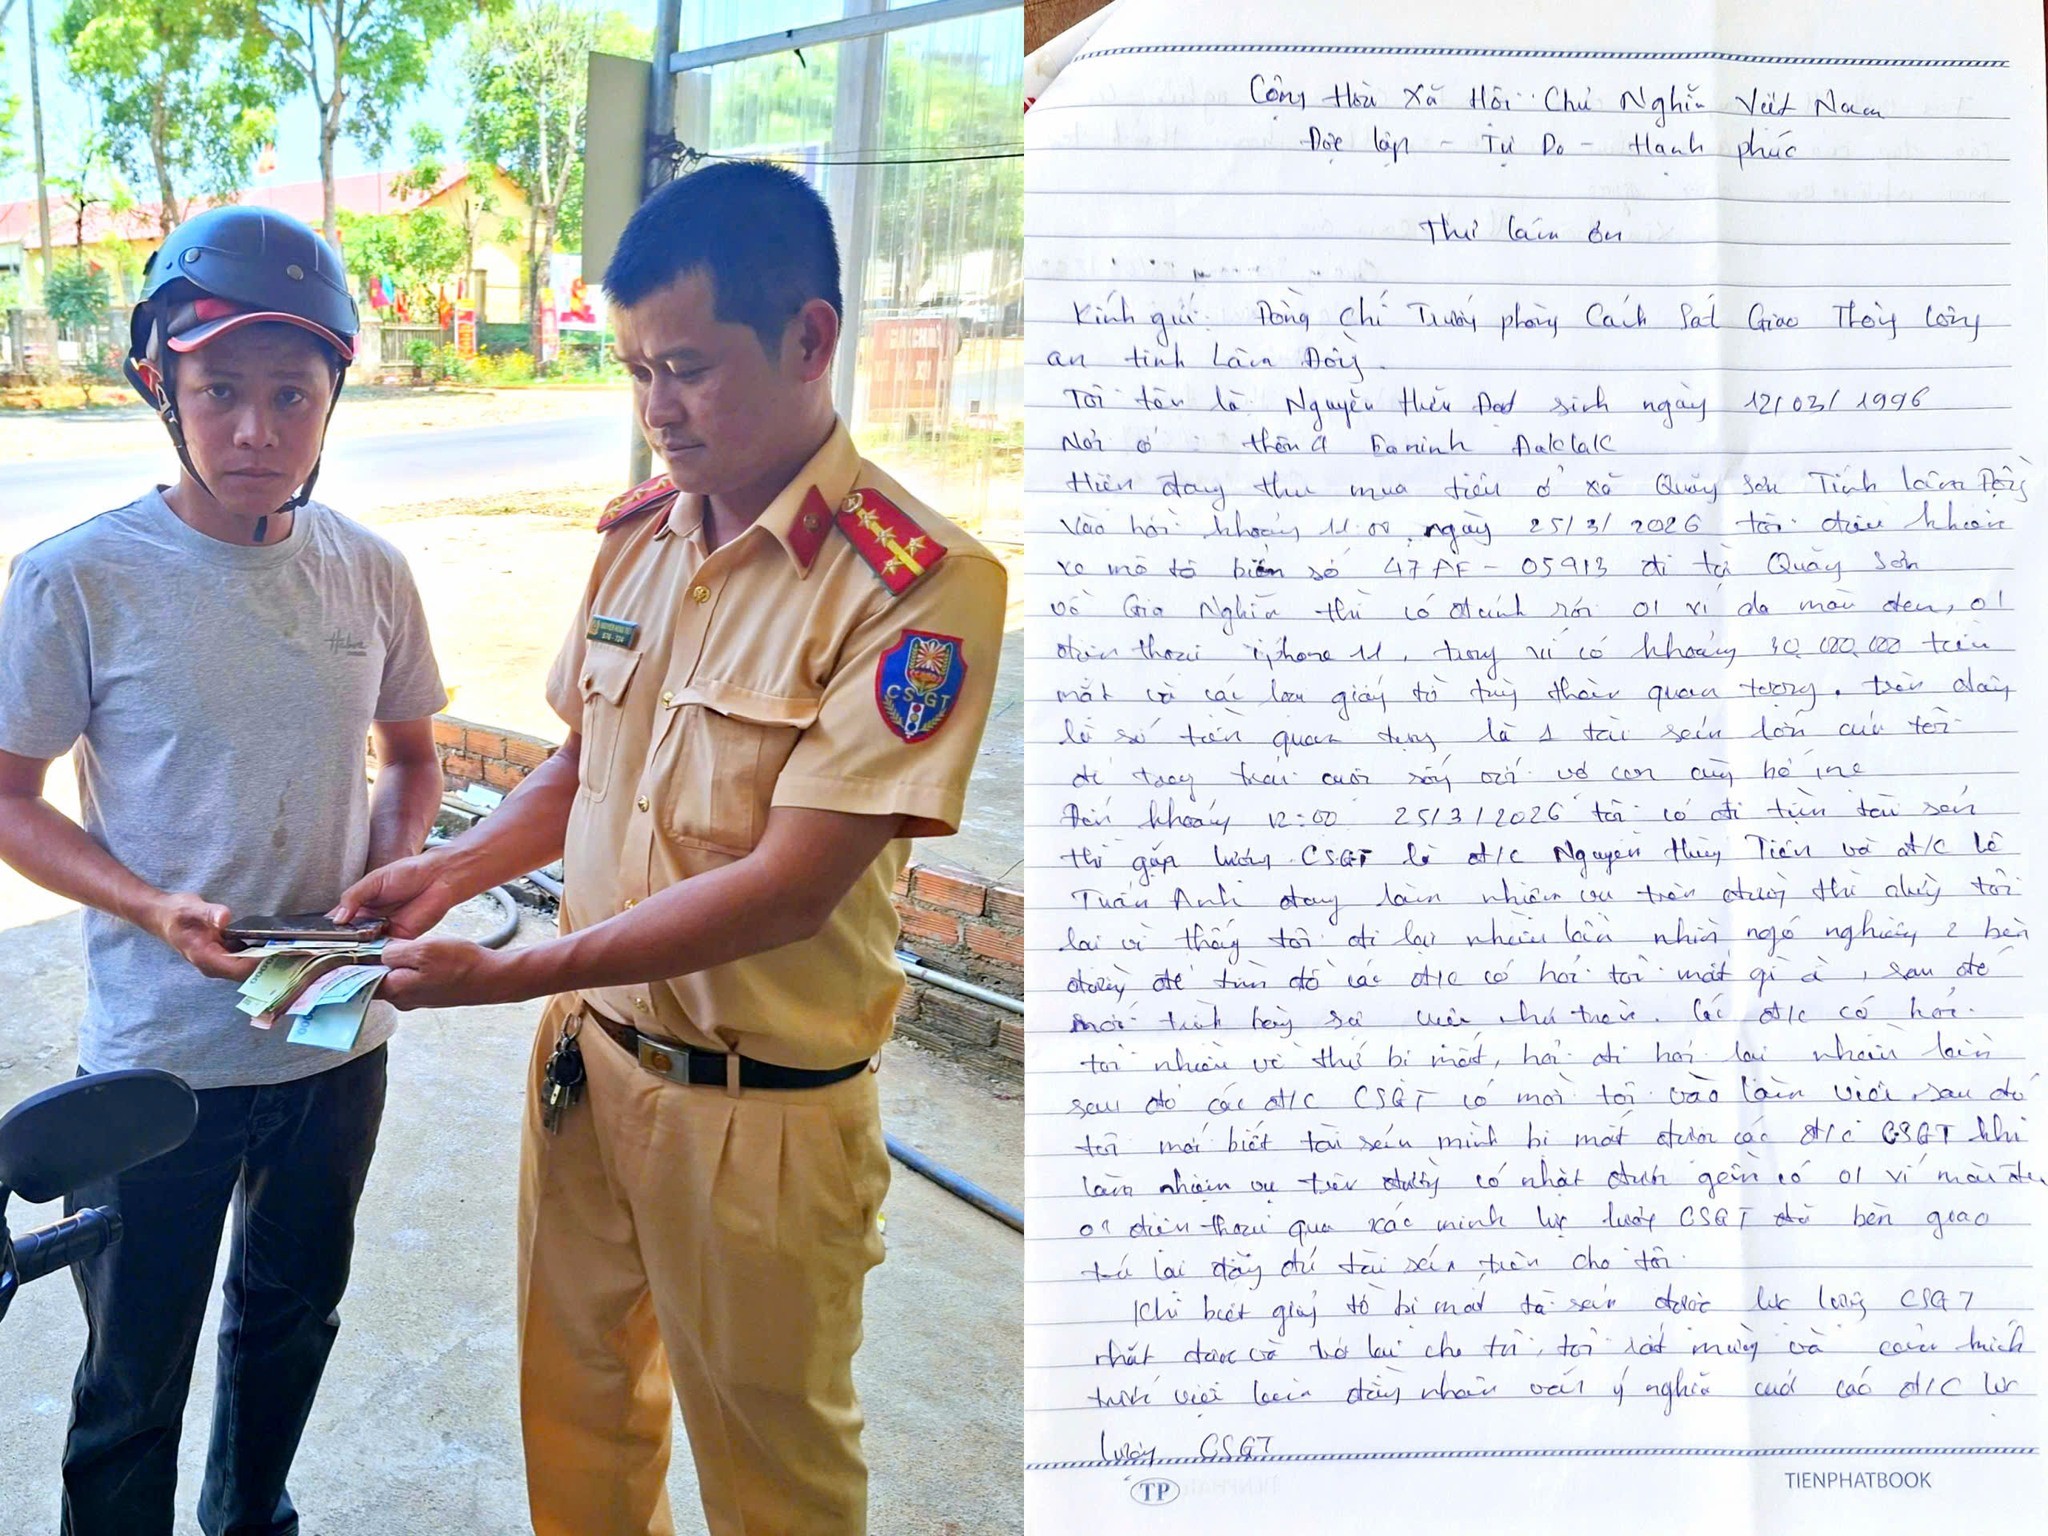 CSGT
Cộng Hòa Xã Hội Chủ Nghĩa Việt Nam
Độc lập - Tự Do - Hạnh phúc
Thư Cám ơn
Kính gửi: Đồng Chí Trưởng phòng Cảnh Sát Giao Thông Công
an tỉnh Lâm Đồng.
Tôi tên là: Nguyễn Hữu Đạt sinh ngày 12/03/1996
Nơi ở : thôn 4 Eaninh Daklak
Hiện đang thu mua tiêu ở xã Quảng Sơn Tỉnh Lâm Đồng
Vào hồi khoảng 11:00, ngày 25/3/2026 tôi điều khiển
xe mô tô biển số 47AF-05913 đi từ Quảng Sơn
về Gia Nghĩa thì có đánh rơi 01 ví da màu đen, 01
điện thoại iphone 11, trong ví có khoảng 30,000,000 tiền
mặt và các loại giấy tờ tuỳ thân quan trọng, trên đây
là số tiền quan trọng là 1 tài sản lớn của tôi
để trang trải cuộc sống với vợ con cùng bố mẹ
Đến khoảng 12:00 25/3/2026 tôi có đi tìm tài sản
thì gặp lượng CSGT là đ/c Nguyễn Thủy Tiên và đ/c Lê
Tuấn Anh đang làm nhiệm vụ trên đường thì dừng tôi
lại vì thấy tôi đi lại nhiều lần nhìn ngó nghiêng 2 bên
đường để tìm đồ các đ/c có hỏi tôi mất gì à, sau đó
mới trình bày sự việc như trên. Các đ/c có hỏi
tôi nhiều về thứ bị mất, hỏi đi hỏi lại nhiều lần
sau đó các đ/c CSGT có mời tôi vào làm việc sau đó
tôi mới biết tài sản mình bị mất được các đ/c CSGT khi
làm nhiệm vụ trên đường có nhặt được gồm có 01 ví màu đen
01 điện thoại qua xác minh lực lượng CSGT đã bàn giao
trả lại đầy đủ tài sản trên cho tôi.
Khi biết giấy tờ bị mất tài sản được lực lượng CSGT
nhặt được và trả lại cho tôi, tôi rất mừng và cảm kích
trước việc làm đầy nhân văn ý nghĩa của các đ/c lực
lượng CSGT
TP
TIENPHATBOOK